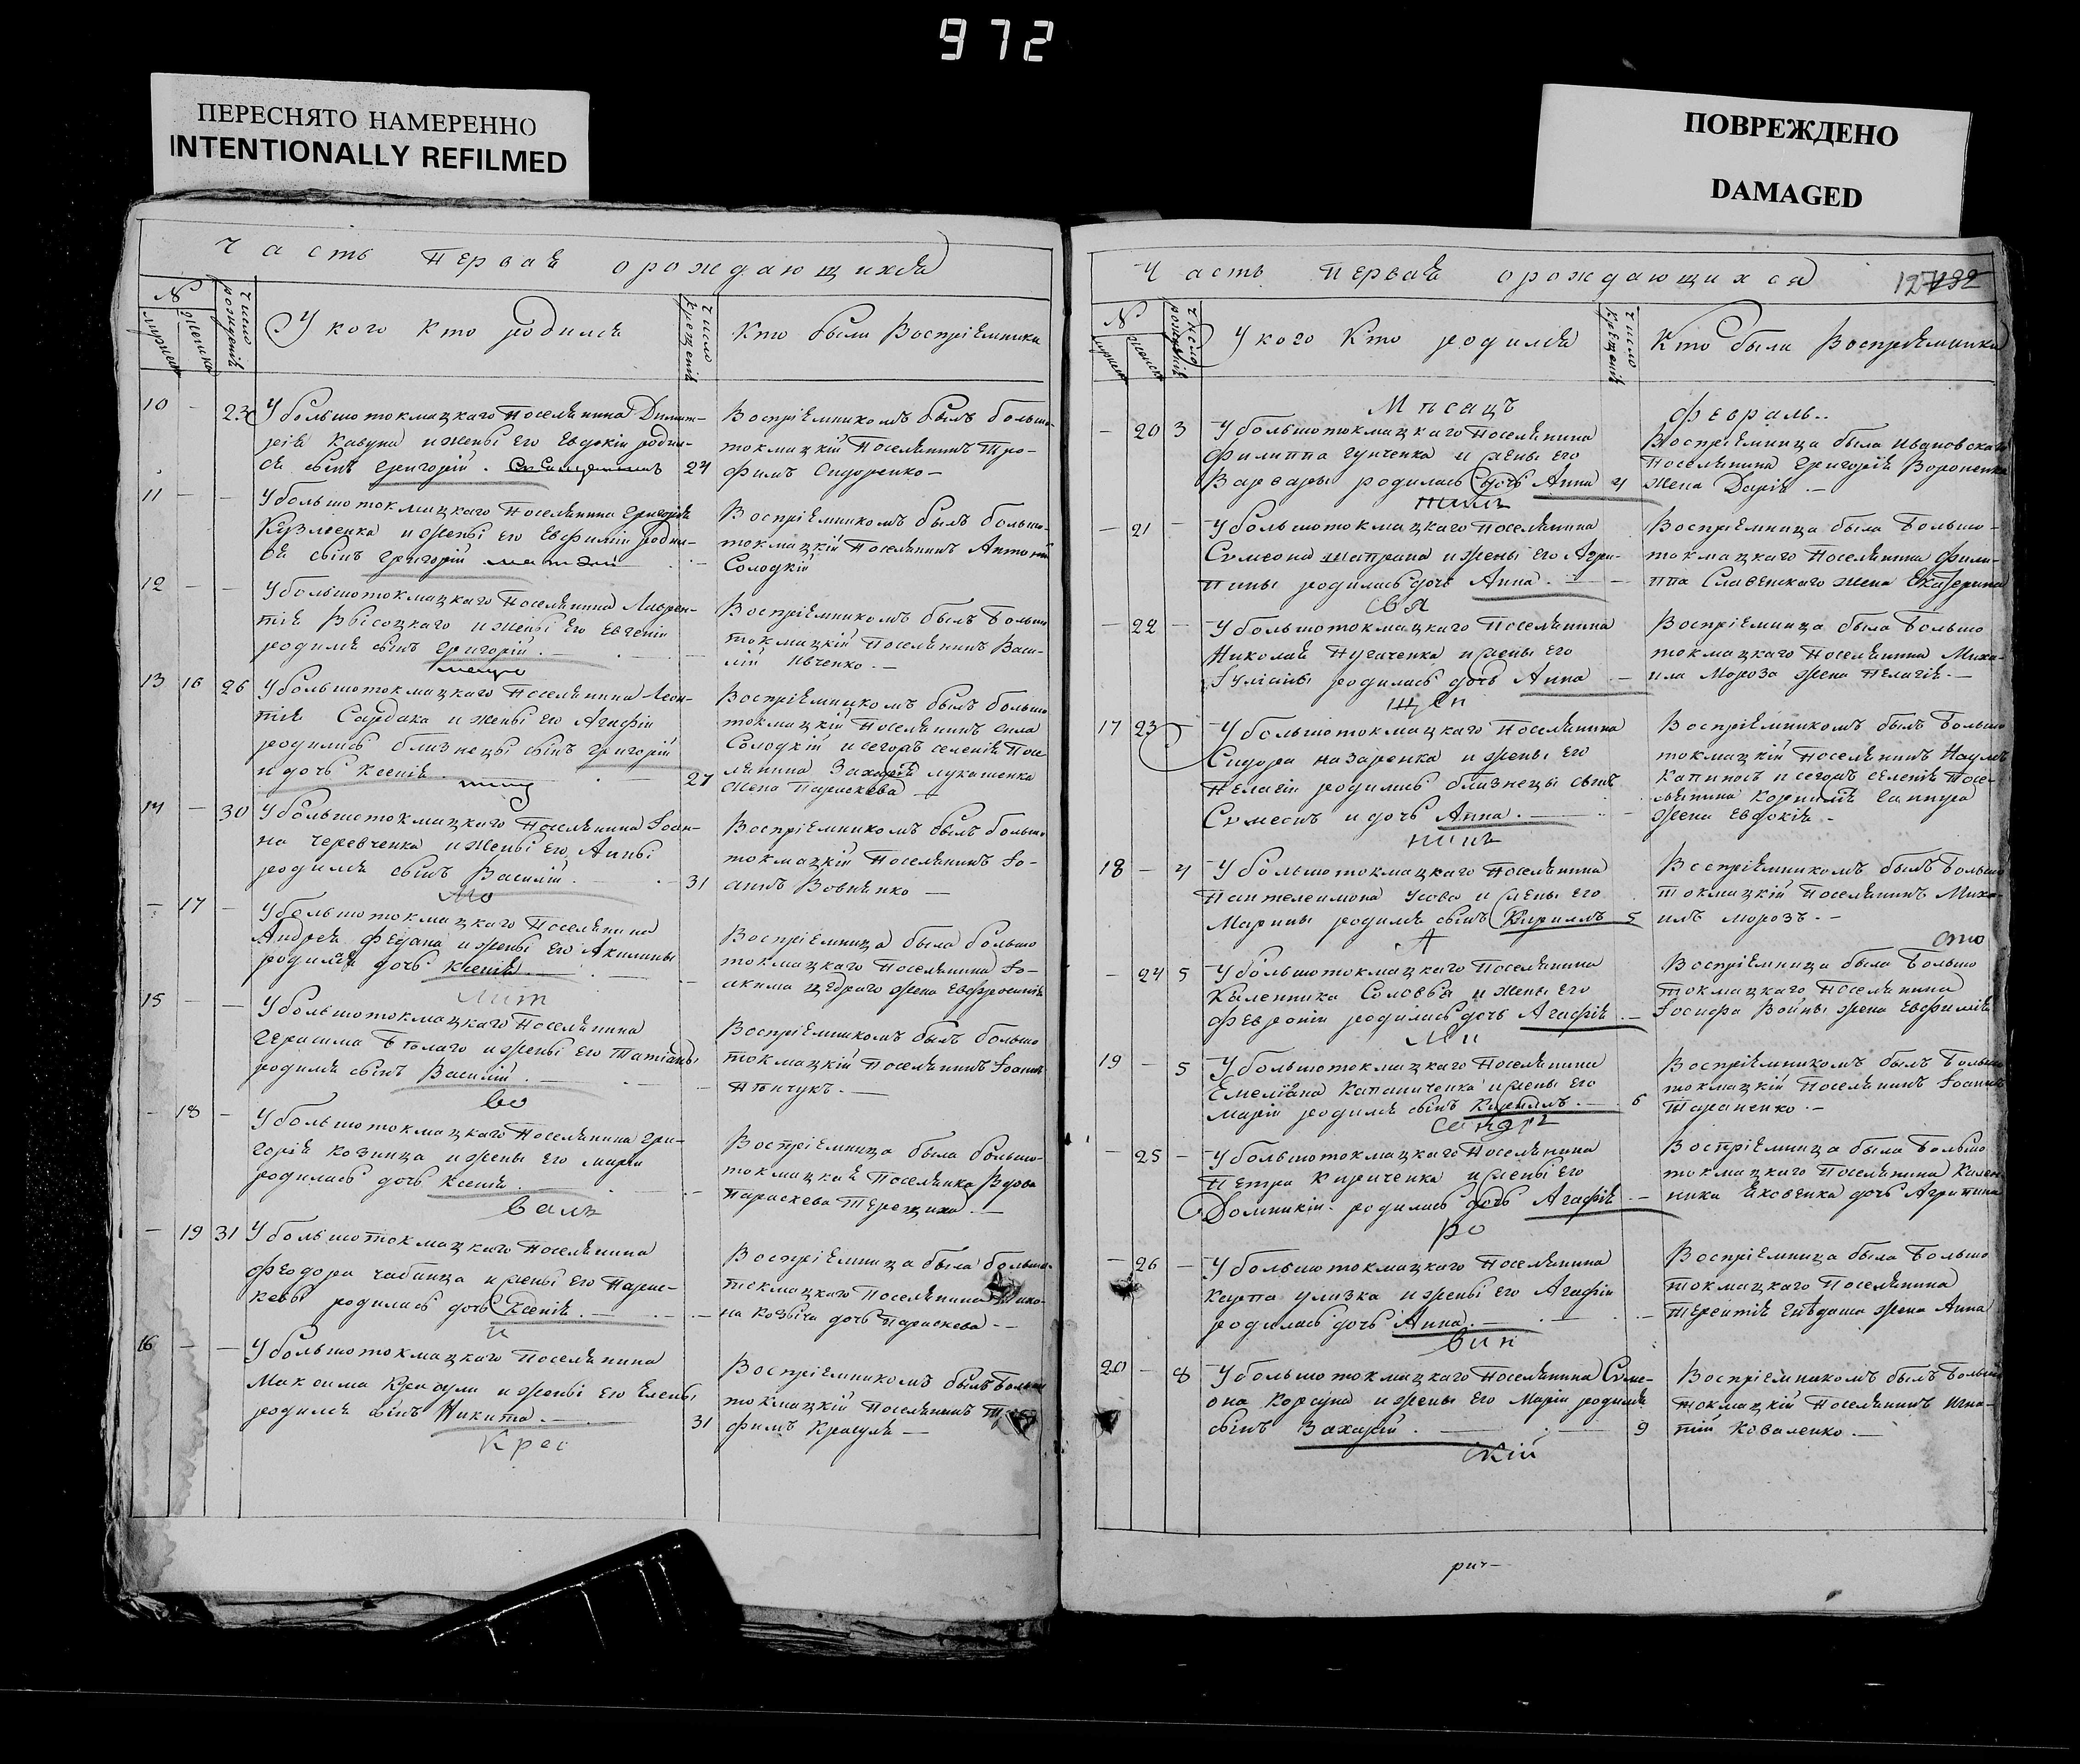 972
ПЕРЕСНЯТО НАМЕРЕННО
INTENTIONALLY REFILMED
ПОВРЕЖДЕНО
DAMAGED
Часть Первая о рождающихся
№
мужеска
женска
число рожденія
У кого кто родился
число крещенія
Кто были Воспріемники
10 - 23 У большотокмацкаго Поселянина Димит-
рія Кавуна и жены его Евдокіи родил-
ся сынъ Григорій. 24
Воспріемникомъ былъ большо-
токмацкій Поселянинъ Тро-
фимъ Сидоренко —
11 - - У большотокмацкаго Поселянина Григорія
Кузменка и жены его Евфиміи родил-
ся сынъ Григорій
Воспріемникомъ былъ большо-
токмацкій Поселянинъ Антоній
Солодкій
12 - - У большотокмацкаго Поселянина Лаврен-
тія Высоцкаго и жены его Евгеніи
родился сынъ Григорій. —
Воспріемникомъ былъ большо
токмацкій Поселянинъ Васи-
лій Ивченко. —
13 16 26 У большотокмацкаго Поселянина Леон-
тія Сардака и жены его Агафіи
родились близнецы сынъ Григорій
и дочь Ксенія. 27
Воспріемникомъ былъ большо
токмацкій Поселянинъ Сила
Солодкій и сегожъ селенія Посе
лянина Захарія Лукашенка
жена Параскева —
14 - 30 У большотокмацкаго Поселянина Іоан-
на Черевченка и жены его Анны
родился сынъ Василій. 31
Мо
Воспріемникомъ былъ большо
токмацкій Поселянинъ Іо-
аннъ Вовченко —
- 17 - У большотокмацкаго Поселянина
Андрея Федана и жены его Акилины
родилась дочь Ксенія
Воспріемница была большо
токмацкаго Поселянина Іо-
акима Щедраго жена Евфросинія
мит
15 - - У большотокмацкаго Поселянина
Герасима Бѣлаго и жены его Татіаны
родился сынъ Василій. —
Воспріемникомъ былъ большо
токмацкій Поселянинъ Іоаннъ
во
- 18 - У большотокмацкаго Поселянина Гри-
горія Кознца и жены его Маріи
родилась дочь Ксенія
Воспріемница была большо-
токмацкая Поселянка Вдова
Параскева Терещиха. —
валъ
- 19 31 У большотокмацкаго Поселянина
Феодора Чабанца и жены его Парас-
кевы родилась дочь Ксенія. —
Воспріемница была большо-
токмацкаго Поселянина
на Козыча дочь Параскева. —
и
16 - - У большотокмацкаго Поселянина
Максима Красули и жены его Елены
родился сынъ Никита. — 31
Воспріемникомъ былъ больше
токмацкій Поселянинъ
фимъ Красуля —
Крес
Часть Первая о рождающихся
127
132
№
мужеска
женска
число рожденія
У кого кто родился
число крещенія
Кто были Воспріемники
Мѣсацъ Февраль..
- 20 3 У большотокмацкаго Поселянина
Филиппа Гунченка и жены его
Варвары родилась дочь Анна 4
Воспріемница была Ивановскаго
Поселянина Григорія Вороненка
жена Дарія. —
- 21 - У большотокмацкаго Поселянина
Сумеона Шапрана и жены его Агри-
пины родилась дочь Анна. —
Воспріемница была Большо-
токмацкаго Поселянина Фили-
ппа Славенскаго жена Екатерина
- 22 - У большотокмацкаго Поселянина
Николая Пугаченка и жены его
Іуліаны родилась дочь Анна —
Воспріемница была Большо
токмацкаго Поселянина Миха-
ила Мороза жена Пелагія. —
щен
17 23 - У большотокмацкаго Поселянина
Сидора Назаренка и жены его
Пелагіи родились близнецы сынъ
Сумеонъ и дочь Анна. —
Воспріемникомъ былъ Большо
токмацкій Поселянинъ Наумъ
Капиносъ и сегожъ селенія Посе-
лянина Корнилія
жена Евдокія —
никъ
18 - 4 У большотокмацкаго Поселянина
Пантелеимона Усова и жены его
Марины родился сынъ Кириллъ 5
Воспріемникомъ былъ Большо
токмацкій Поселянинъ Миха-
илъ Морозъ. —
- 24 5 У большотокмацкаго Поселянина
Каленника Соловья и жены его
Февроніи родилась дочь Агафія. —
Воспріемница была Большо
токмацкаго Поселянина
Іосифа Войны жена Евфимія
19 - 5 У большотокмацкаго Поселянина
Емеліана Капаниченка и жены его
Маріи родился сынъ Кириллъ. — 6
Воспріемникомъ былъ Больше
токмацкій Поселянинъ Іоаннъ
Тараненко. —
- 25 - У большотокмацкаго Поселянина
Петра Кириченка и жены его
Домникіи родилась дочь Агафія. —
Воспріемница была Больше
токмацкаго Поселянина Кален
ника Яковенка дочь Агрипина
ро
- 26 - У большотокмацкаго Поселянина
Карпа Улизка и жены его Агафіи
родилась дочь Анна. —
Воспріемница была Большо
токмацкаго Поселянина
Терентія Гнѣдаша жена Анна
вин
20 - 8 У большотокмацкаго Поселянина Суме-
она Корсуна и жены его Маріи родился
сынъ Захарій. — 9
Воспріемникомъ былъ Больше
токмацкій Поселянинъ Игна-
тій Коваленко. —
скій
рич—